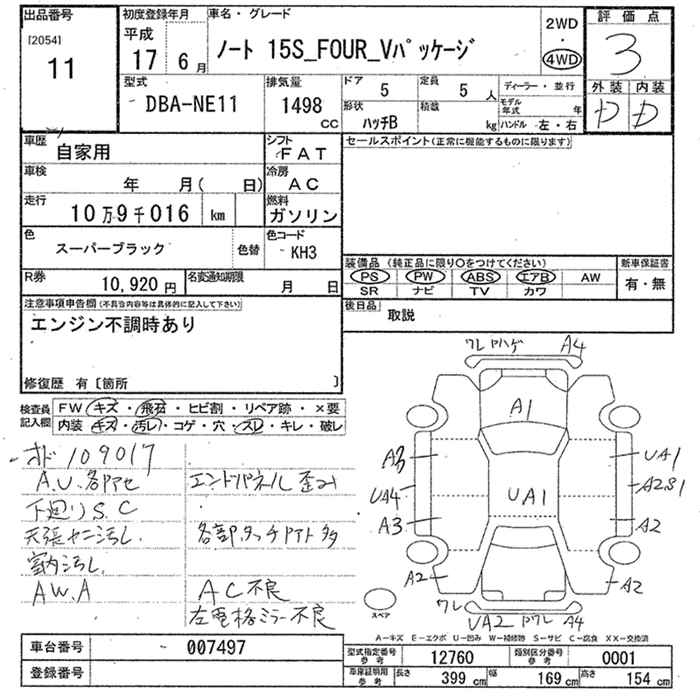 出品番号 [2054] 11
初度登録年月 平成 17 6月
車名・グレード ノート 15S_FOUR_Vパッケージ
2WD・4WD
評価点 3
型式 DBA-NE11
排気量 1498 CC
ドア 5 定員 5 人
形状 ハッチB 積載 kg
ディーラー・並行
モデル年式 年
ハンドル 左・右
外装 内装
D D
車歴 自家用
シフト FAT
セールスポイント(正常に機能するものに限ります)
車検 年 月( 日)
冷房 AC
走行 10万9千016 km
燃料 ガソリン
色 スーパーブラック 色替
色コード KH3
装備品(純正品に限り○をつけてください)
PS PW ABS エアB AW
SR ナビ TV カワ
新車保証書 有・無
R券 10,920円
名変通知期限 月 日
後日品 取説
注意事項申告欄(不具合内容等は具体的に記入して下さい)
エンジン不調時あり
修復歴 有〔箇所 〕
検査員記入欄
FW キズ・飛石・ヒビ割・リペア跡・×要
内装 キズ・汚レ・コゲ・穴・スレ・キレ・破レ
オド 109017
A.U.各アセ エンドパネル歪ミ
下廻りS.C
天張ヤニ汚レ. 各部タッチアト多
室内汚レ.
AW.A AC不良
左電格ミラー不良
ワレ A4
A1
A3 UA1
UA4 UA1 A2.S1
A3 A2
A2 A2
スペア
ワレ UA2 ワレ A4
A―キズ E―エクボ U―凹み W―補修跡 S―サビ C―腐食 XX―交換済
車台番号 007497
登録番号
型式指定番号 参考 12760 類別区分番号 参考 0001
車庫証明用 参考 長さ 399 cm 幅 169 cm 高さ 154 cm